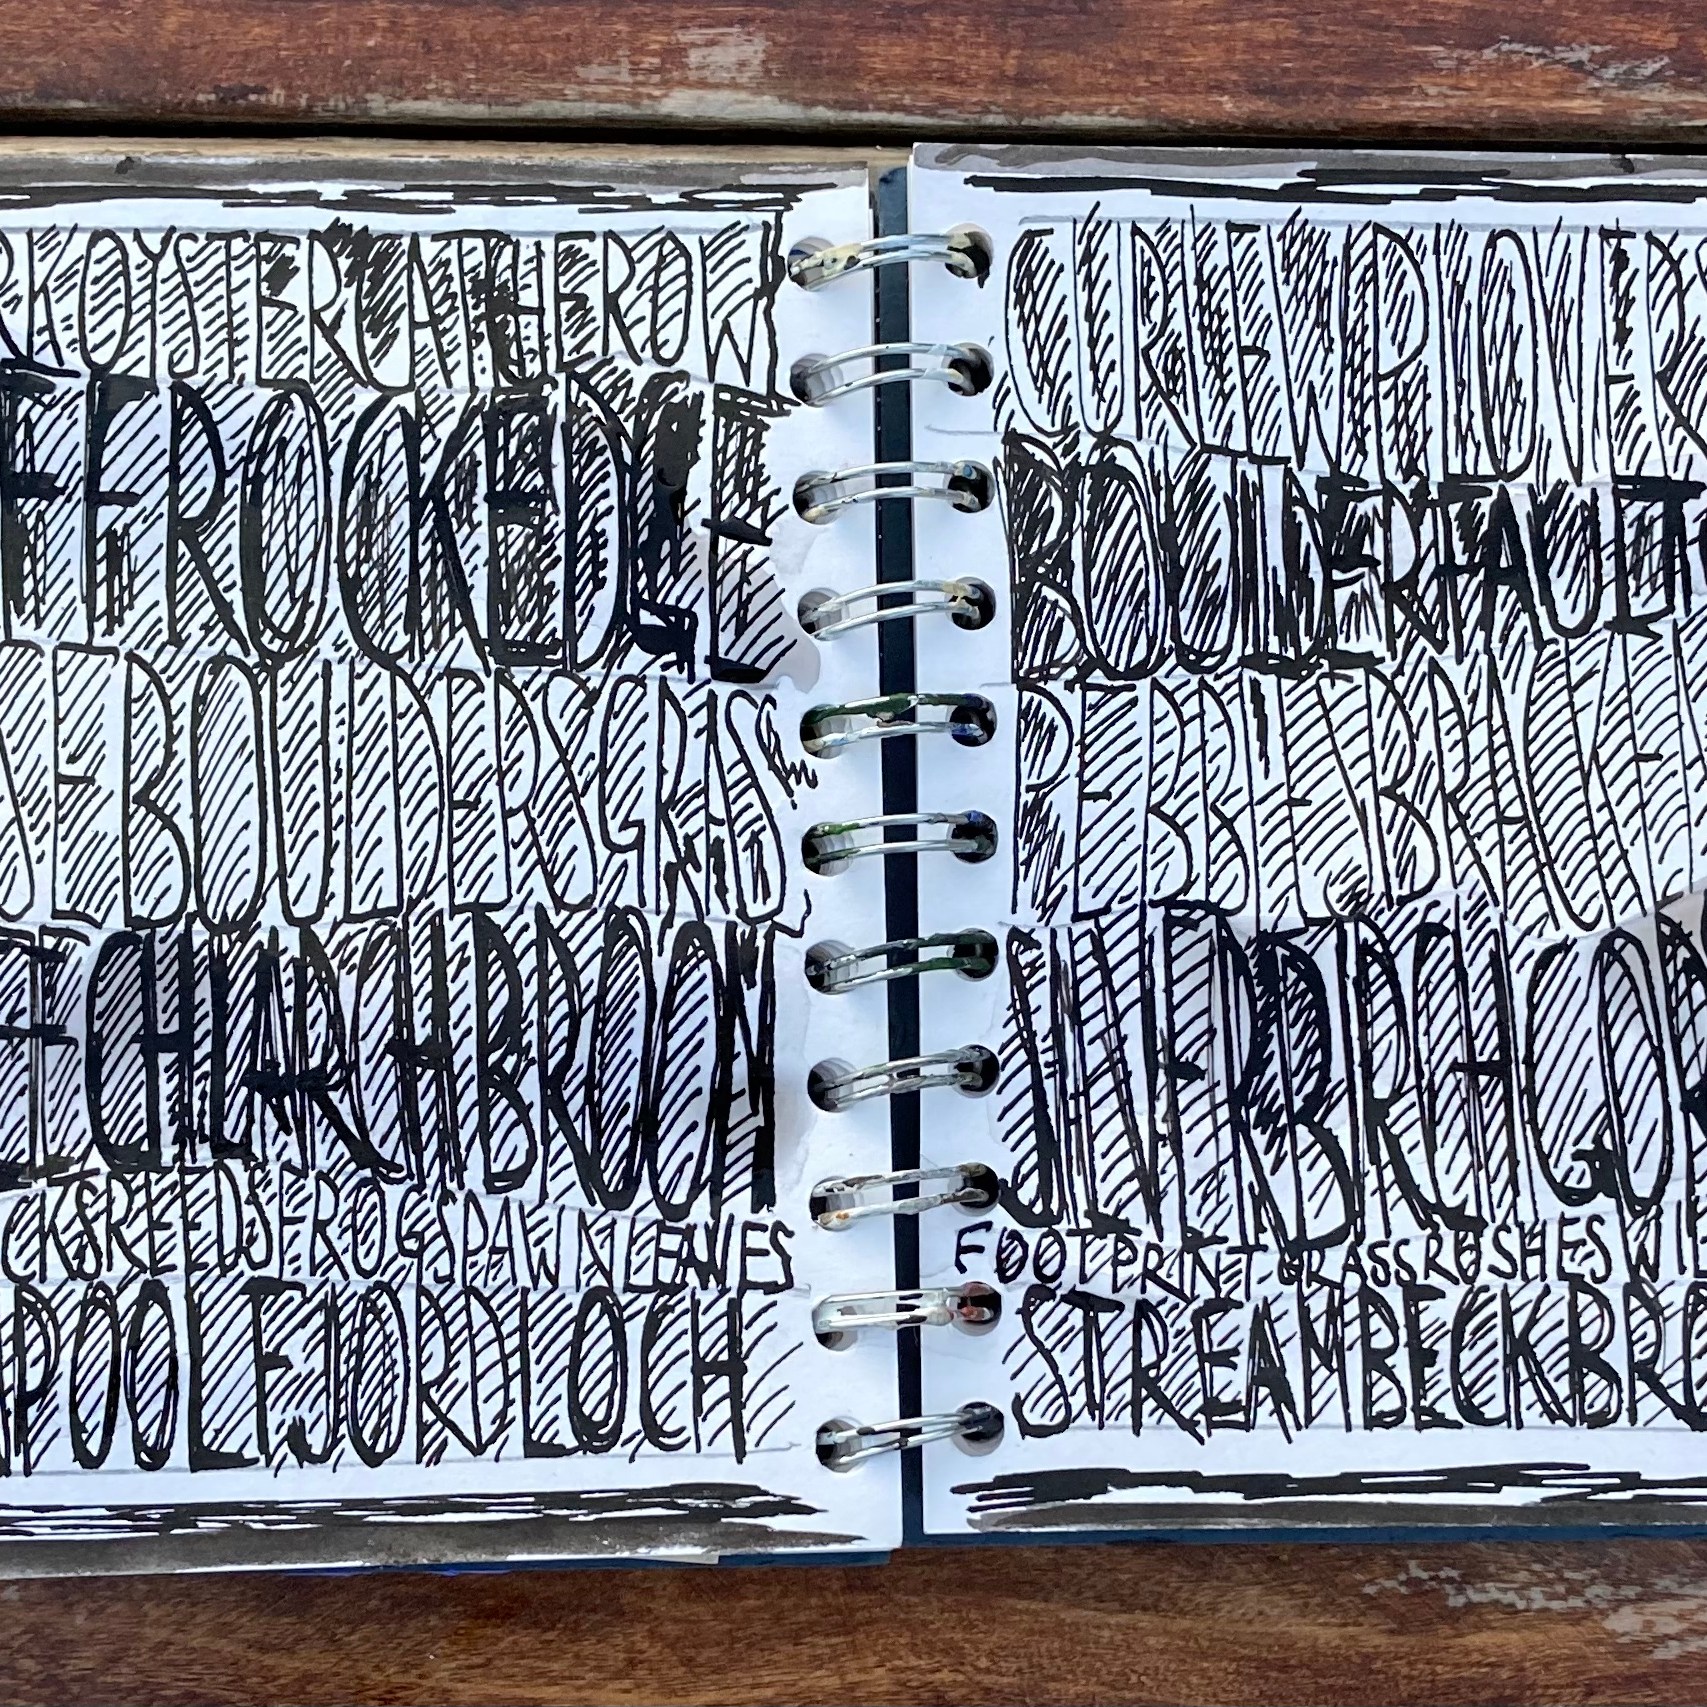 RKOYSTERCATHEROW
FFROCKEDGE
SEBOULDERSGRASS
ECHLARCHBROOM
CKSREEDSFROGSPAWNLEAVES
POOLFJORDLOCH
CURLEWPLOVERS
BOULDERFAULT
PEBBLESBRACKEN
SILVERBIRCHGOR
FOOTPRINTGRASSRUSHESWIL
STREAMBECKBRO